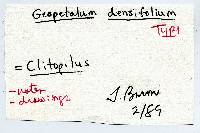 Geopetalum densifolium
TYPE
= Clitopilus
- notes
- drawings
2/89